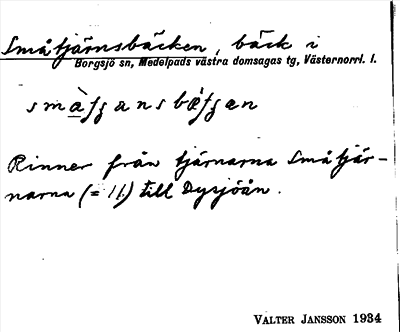 Småtjärnsbäcken, bäck i
Borgsjö sn, Medelpads västra domsagas tg, Västernorrl. l.
Rinner från tjärnarna Småtjär-
narna (= 11.) till Dysjöån.
VALTER JANSSON 1934